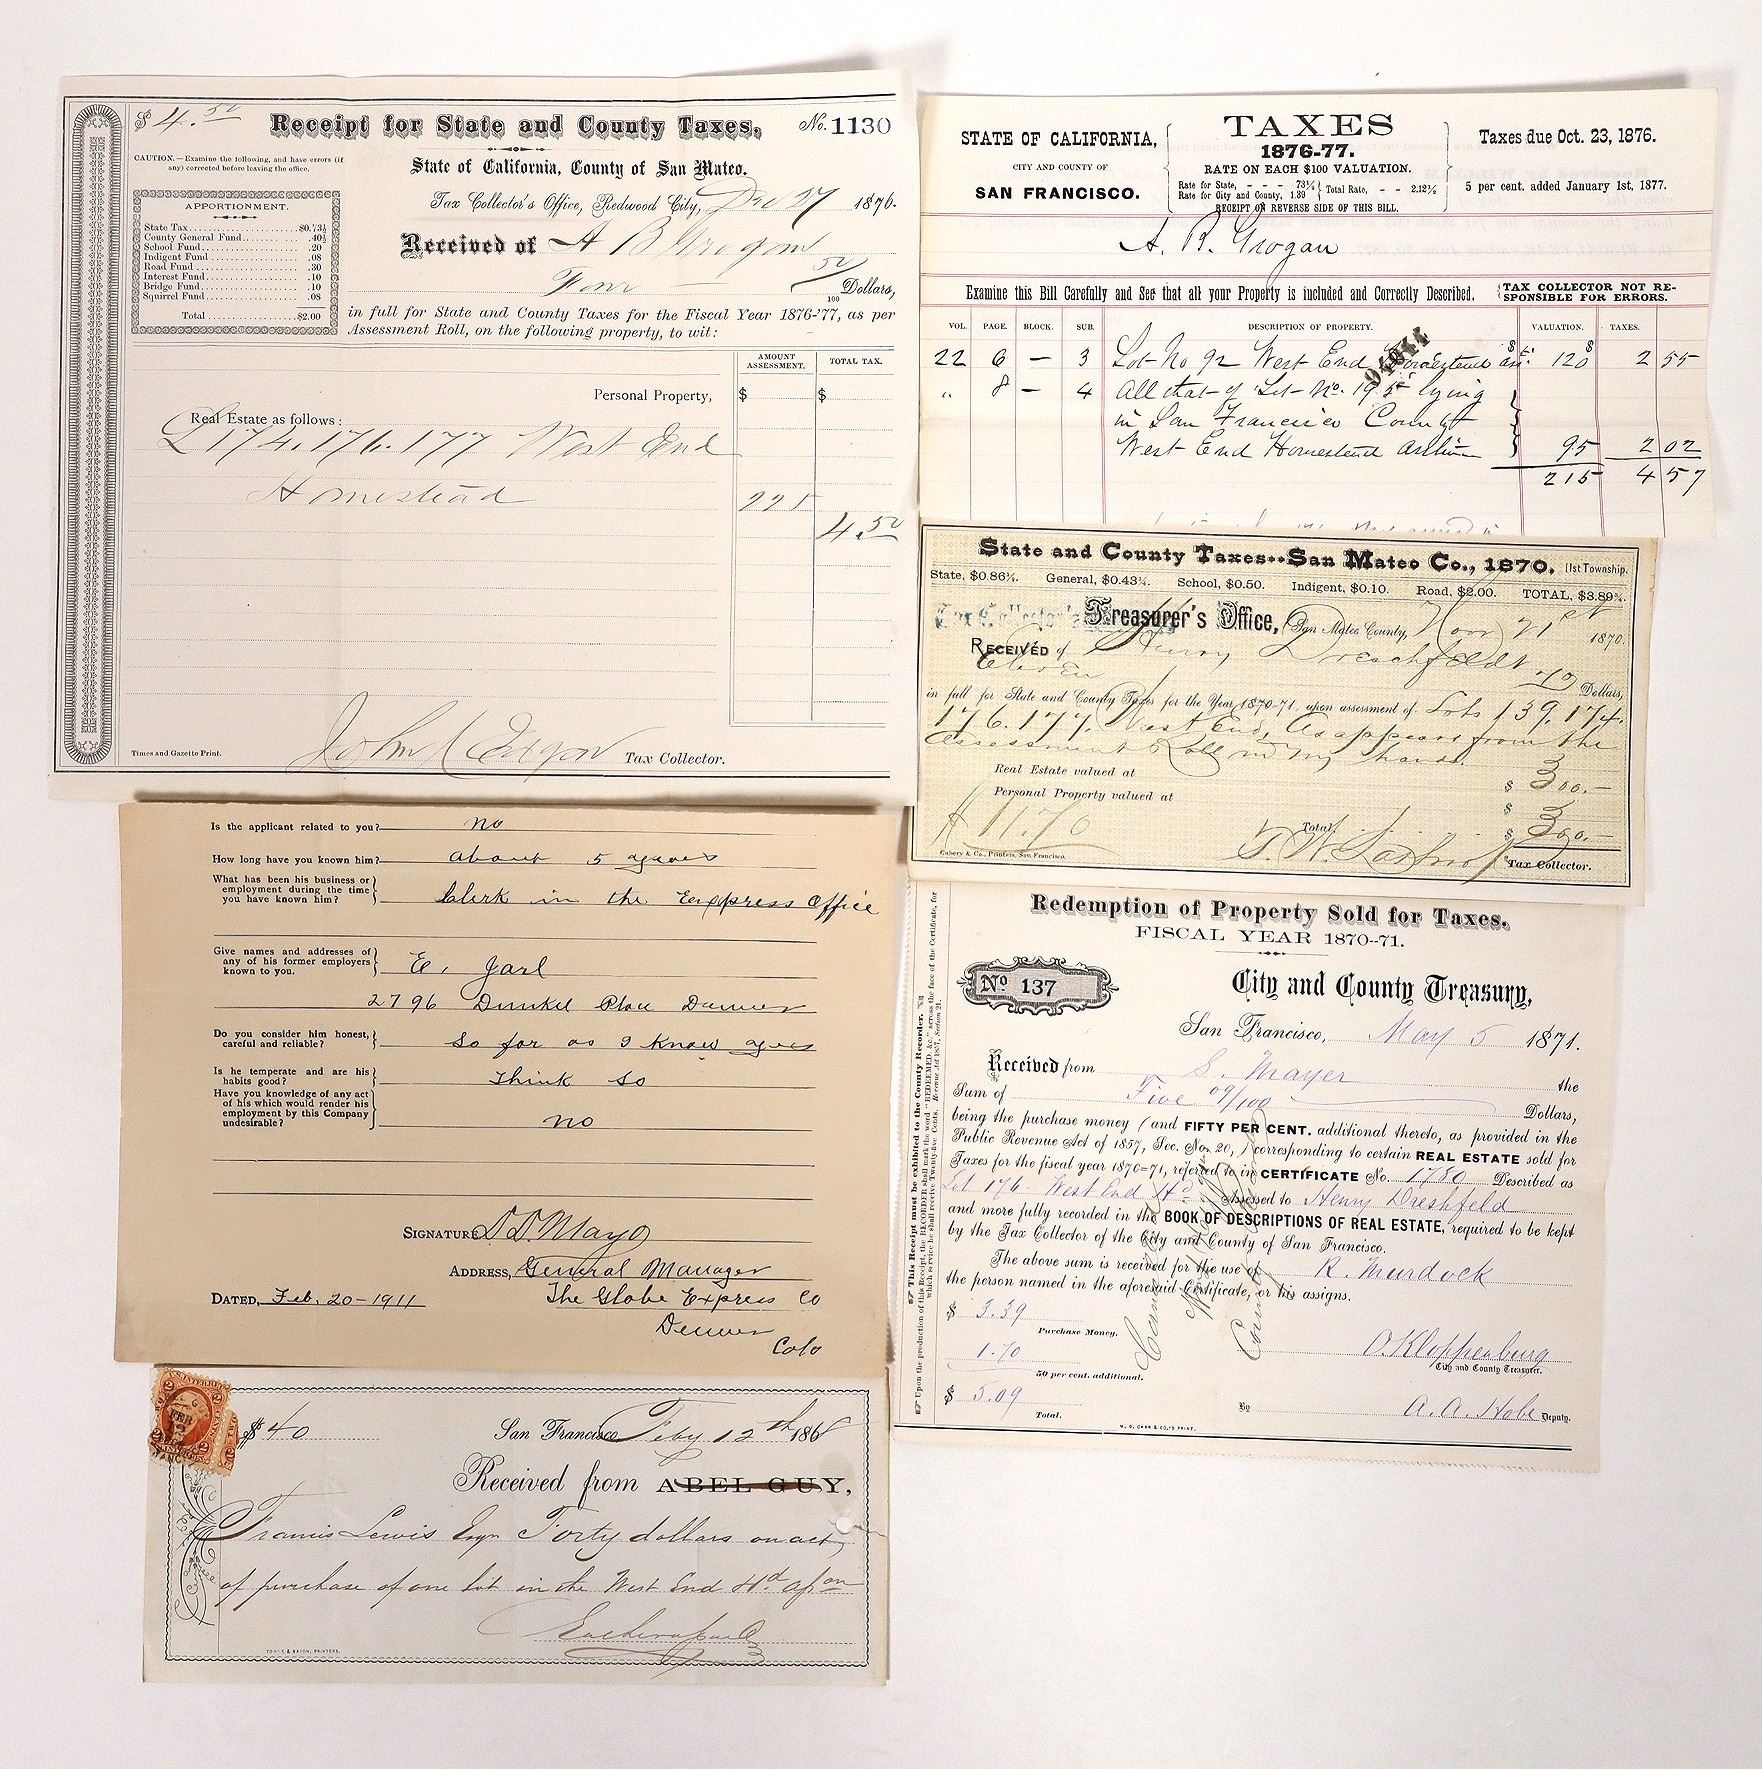 $ 4.50
Receipt for State and County Taxes,
No. 1130
CAUTION.—Examine the following, and have errors (if
any) corrected before leaving the office.
State of California, County of San Mateo.
Tax Collector's Office, Redwood City, Dec 27 1876.
APPORTIONMENT.
State Tax $0.73½
County General Fund .40½
School Fund .20
Indigent Fund .08
Road Fund .30
Interest Fund .10
Bridge Fund .10
Squirrel Fund .08
Total $2.00
Received of A B Grogan
Four 50/100 Dollars,
in full for State and County Taxes for the Fiscal Year 1876-'77, as per
Assessment Roll, on the following property, to wit:
AMOUNT ASSESSMENT. TOTAL TAX.
Personal Property, $ $
Real Estate as follows:
L 174.176.177 West End
Homestead 225
4.50
Times and Gazette Print.
Tax Collector.
STATE OF CALIFORNIA,
CITY AND COUNTY OF
SAN FRANCISCO.
TAXES
1876-77.
RATE ON EACH $100 VALUATION.
Rate for State, - - - 73½
Rate for City and County, 1.39
Total Rate, - - 2.12½
RECEIPT ON REVERSE SIDE OF THIS BILL.
Taxes due Oct. 23, 1876.
5 per cent. added January 1st, 1877.
A. B. Grogan
Examine this Bill Carefully and See that all your Property is included and Correctly Described.
TAX COLLECTOR NOT RE-
SPONSIBLE FOR ERRORS.
VOL. PAGE. BLOCK. SUB. DESCRIPTION OF PROPERTY. VALUATION. TAXES.
22 6 — 3 Lot No 92 West End Homestead assn. $ 120 $ 2 55
" 8 — 4 All that of Lot No. 195 lying
in San Francisco County
West End Homestead Assn 95 2 02
215 4 57
State and County Taxes--San Mateo Co., 1870. 1st Township.
State, $0.86½. General, $0.43¼. School, $0.50. Indigent, $0.10. Road, $2.00. TOTAL, $3.89¾.
Tax Collector's Treasurer's Office, San Mateo County, Nov 21st 1870.
RECEIVED of Henry Dreschfeldt
Eleven 70 Dollars,
in full for State and County Taxes for the Year 1870-71, upon assessment of Lots 139, 174.
176. 177. West End, As appears from the
Assessment Roll in my hands.
Real Estate valued at $ 300.—
Personal Property valued at $
$ 11.70
Total, $ 300.—
Cubery & Co., Printers, San Francisco.
Tax Collector.
Is the applicant related to you? no
How long have you known him? about 5 years
What has been his business or
employment during the time
you have known him? Clerk in the Express Office
Give names and addresses of
any of his former employers
known to you. E. Jarl
2796 Dunkel Place Denver
Do you consider him honest,
careful and reliable? So far as I know yes
Is he temperate and are his
habits good? Think so
Have you knowledge of any act
of his which would render his
employment by this Company
undesirable? no
SIGNATURE D D Mayo
ADDRESS, General Manager
DATED, Feb. 20-1911 The Globe Express Co
Denver
Colo
This Receipt must be exhibited to the County Recorder.
Upon the production of this Receipt, the RECORDER shall mark the word "REDEEMED, &c." across the face of the Certificate, for
which service he shall receive Twenty-five Cents. Revenue Act 1857, Section 21.
Redemption of Property Sold for Taxes.
FISCAL YEAR 1870--71.
No 137
City and County Treasury,
San Francisco, May 5 1871.
Received from S. Mayer the
Sum of Five 09/100 Dollars,
being the purchase money (and FIFTY PER CENT. additional thereto, as provided in the
Public Revenue Act of 1857, Sec. No. 20,) corresponding to certain REAL ESTATE sold for
Taxes for the fiscal year 1870=71, referred to in CERTIFICATE No. 1780 Described as
Lot 176 West End Hd Assessed to Henry Dreshfeld
and more fully recorded in the BOOK OF DESCRIPTIONS OF REAL ESTATE, required to be kept
by the Tax Collector of the City and County of San Francisco.
The above sum is received for the use of R. Murdock
the person named in the aforesaid Certificate, or his assigns.
$ 3.39
Purchase Money.
1.70
50 per cent. additional.
$ 5.09
Total.
O. Kloppenburg
City and County Treasurer.
By A. A. Hobe Deputy.
$40 San Francisco Feby 12th 1868
Received from ABEL GUY,
Francis Lewis Esqr Forty dollars on act,
of purchase of one lot in the West End Hd. Ason
TOWNE & BACON, PRINTERS.
FEB
12